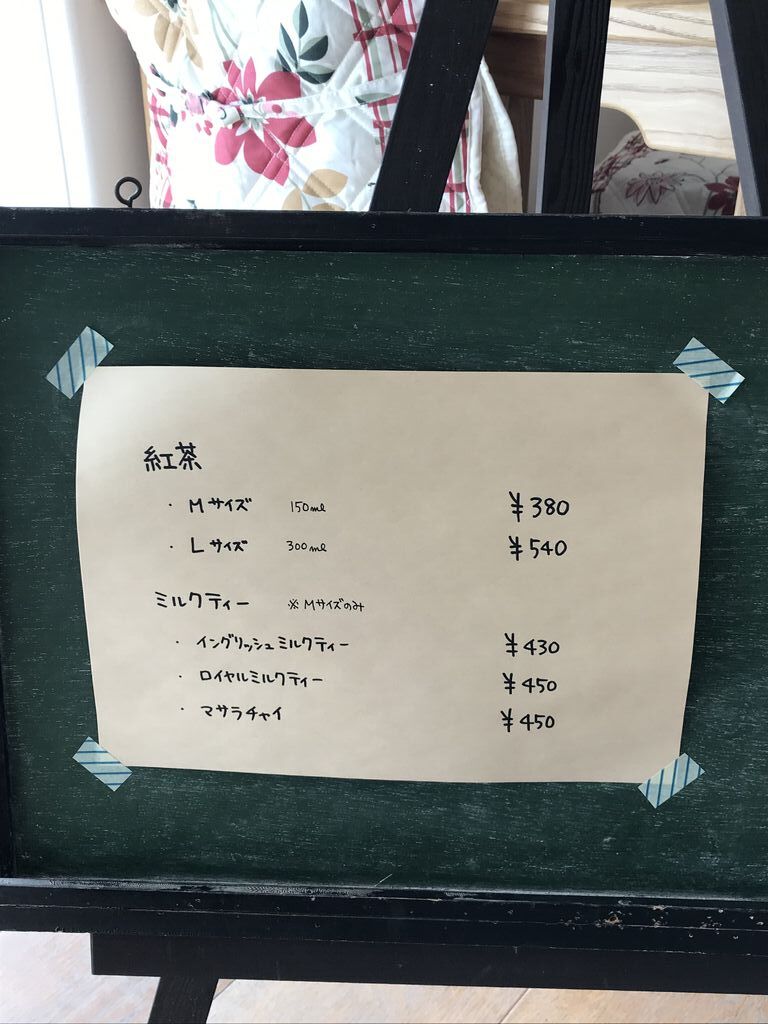 紅茶
・ Mサイズ 150ml ¥380
・ Lサイズ 300ml ¥540
ミルクティー ※Mサイズのみ
・ イングリッシュミルクティー ¥430
・ ロイヤルミルクティー ¥450
・ マサラチャイ ¥450